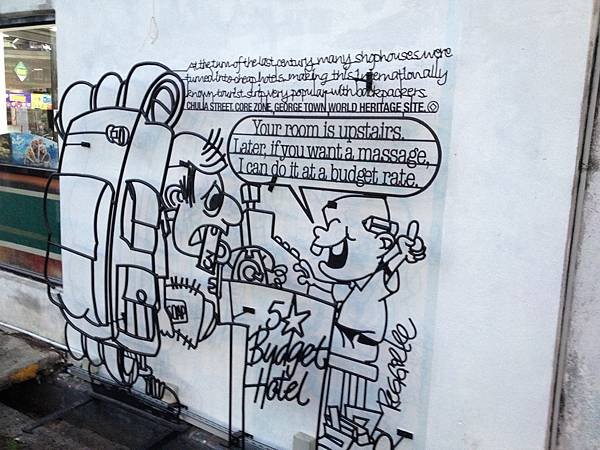 At the turn of the last century, many shophouses were
turned into cheap hotels making this internationally
known tourist strip very popular with backpackers.
CHULIA STREET, CORE ZONE, GEORGE TOWN WORLD HERITAGE SITE. ©
Your room is upstairs.
Later, if you want a massage,
I can do it at a budget rate.
5
Budget
Hotel
Reggie Lee